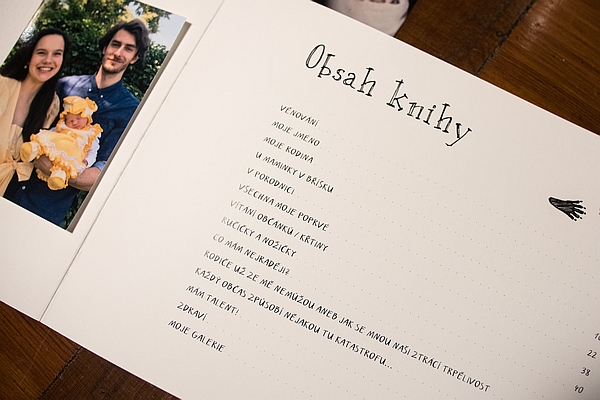 Obsah knihy
VĚNOVÁNÍ
MOJE JMÉNO
MOJE RODINA
U MAMINKY V BŘÍŠKU
V PORODNICI
VŠECHNA MOJE POPRVÉ
VÍTÁNÍ OBČÁNKŮ / KŘTINY
RUČIČKY A NOŽIČKY
CO MÁM NEJRADĚJI?
RODIČE UŽ ZE MĚ NEMŮŽOU ANEB JAK SE MNOU NAŠI ZTRACÍ TRPĚLIVOST
KAŽDÝ OBČAS ZPŮSOBÍ NĚJAKOU TU KATASTROFU...
MÁM TALENT!
ZDRAVÍ
MOJE GALERIE
22
38
40